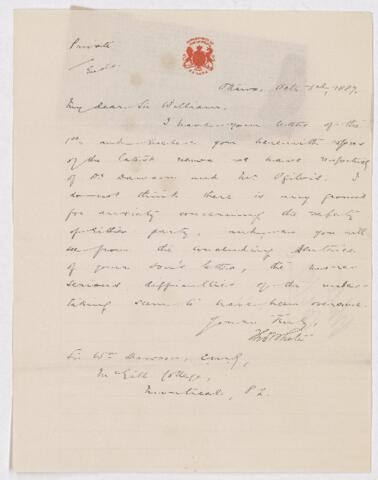 Private
Encl.
DEPARTMENT OF THE INTERIOR
CANADA
Ottawa, Oct. 1887.
My dear Sir William,
I have your letter of the
1st and enclose you herewith copies
of the latest news we have respecting
of Dr Dawson and Mr. Ogilvie. I
do not think there is any ground
for anxiety concerning the safety
of either party, and you will
see from the concluding sentence
of your son's letter, the more
serious difficulties of the under-
taking seem to have been overcome.
Yours truly,
Sir Wm Dawson, C.M.G.,
McGill College,
Montreal, P.Q.